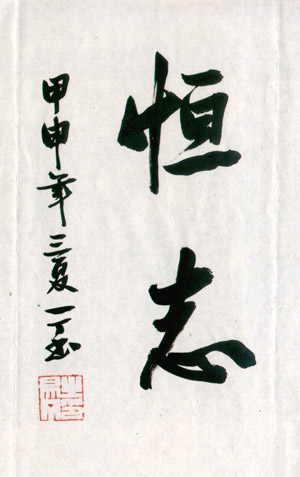 恒志
甲申年三夏一丁书